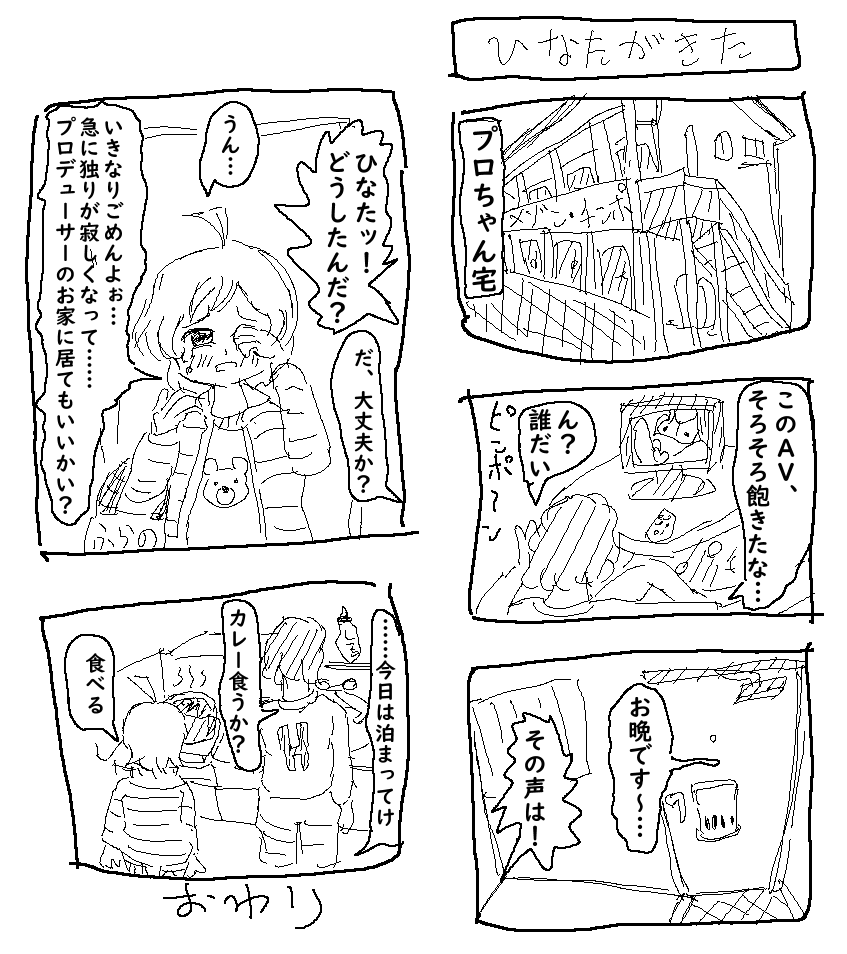 ひなたがきた
プロちゃん宅
メゾン・キポ
このAV、
そろそろ飽きたな…
ん?
誰だい
ピンポ〜ン
お晩です〜…
その声は!
ひなたッ!
どうしたんだ?
だ、大丈夫か?
うん…
いきなりごめんよぉ…
急に独りが寂しくなって……
プロデューサーのお家に居てもいいかい?
……今日は泊まってけ
カレー食うか?
食べる
おわり